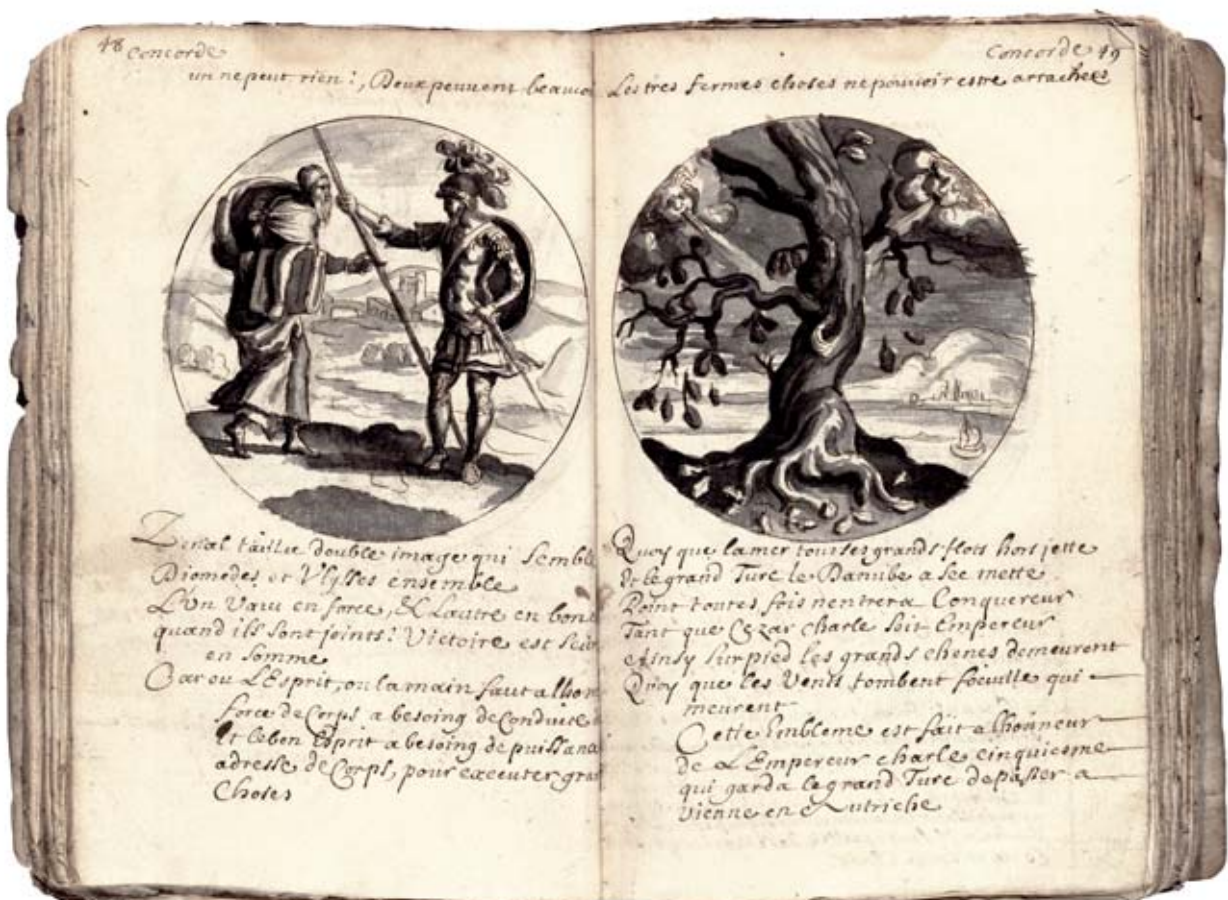 48 Concorde
un ne peut rien :, Deux peuvent beaucou
Zenal taillie double image qui semble
Diomedes, et Vlysses ensemble
L'un Vaut en force, & Lautre en bon
quand ils sont joints: Victoire est
en somme
Car ou L'Esprit, ou la main faut a lhom
force de Corps a besoing de Conduite
Et le bon Esprit a besoing de puissance
adresse de Corps, pour executer gra
Choses
Concorde 49
Les tres fermes choses ne pouvoir estre attachees
Quoy que la mer tous ses grands flots hors jette
Et le grand Turc le Danube a sec mette
Point toutes fois n'entrera Conquereur
Tant que Cezar Charle soit Empereur
Ainsy sur pied les grands chenes demeurent
Quoy que les Vents tombent foeuille qui
meurent
Cette Embleme est fait a lhonneur
de L'Empereur charle cinquiesme
qui garda le grand Turc de passer a
Vienne en Autriche